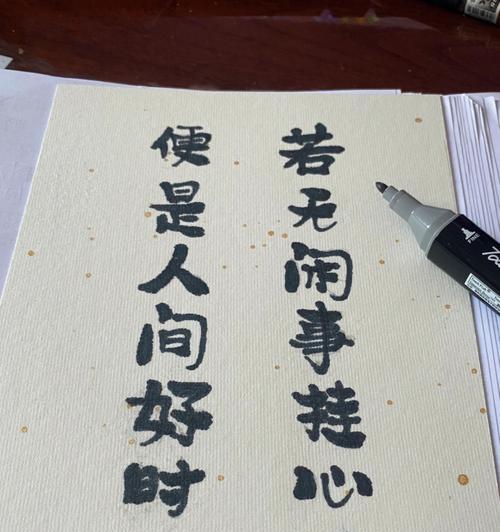 若无闲事挂心
便是人间好时